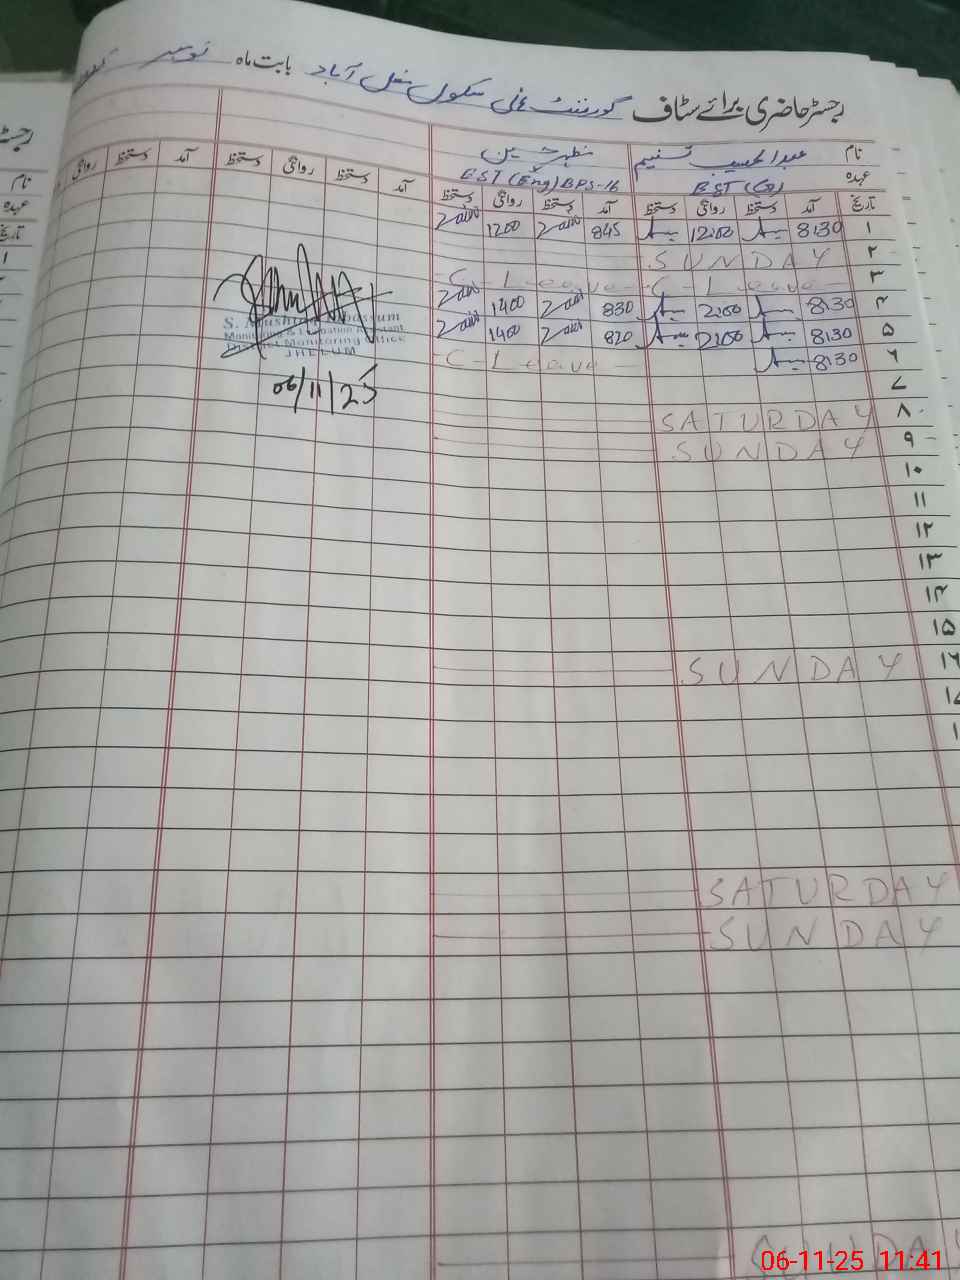 رجسٹر حاضری برائے سٹاف گورنمنٹ ہائی سکول مغل آباد بابت ماہ نومبر
نام عبدالحسیب تسنیم مظہر حسین
عہدہ EST (Eng) BPS-16
تاریخ آمد دستخط روانگی دستخط آمد دستخط روانگی دستخط آمد دستخط روانگی دستخط آمد دستخط روانگی
۱ 8:30 12:00 845 1200
۲ SUNDAY
۳ C-Leave C-Leave
۴ 8:30 2:00 830 1400
۵ 8:30 2:00 820 1400
۶ 8:30 C-Leave
۷
۸ SATURDAY
۹ SUNDAY
۱۰
۱۱
۱۲
۱۳
۱۴
۱۵
۱۶ SUNDAY
SATURDAY
SUNDAY
SUNDAY
District Monitoring Office
JHELUM
06/11/25
رجسٹر
نام
عہدہ
تاریخ
۱
06-11-25 11:41